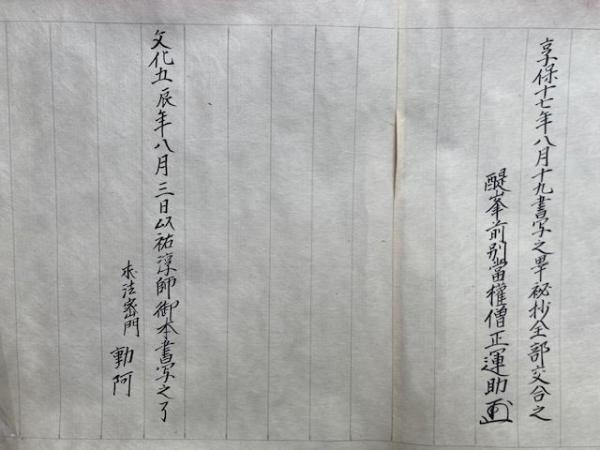 享保十七年八月十九書写之畢祕抄全部交合之
醍峯前別當權僧正運助
文化五辰年八月三日以祐淳師御本書写之了
求法密門 動阿